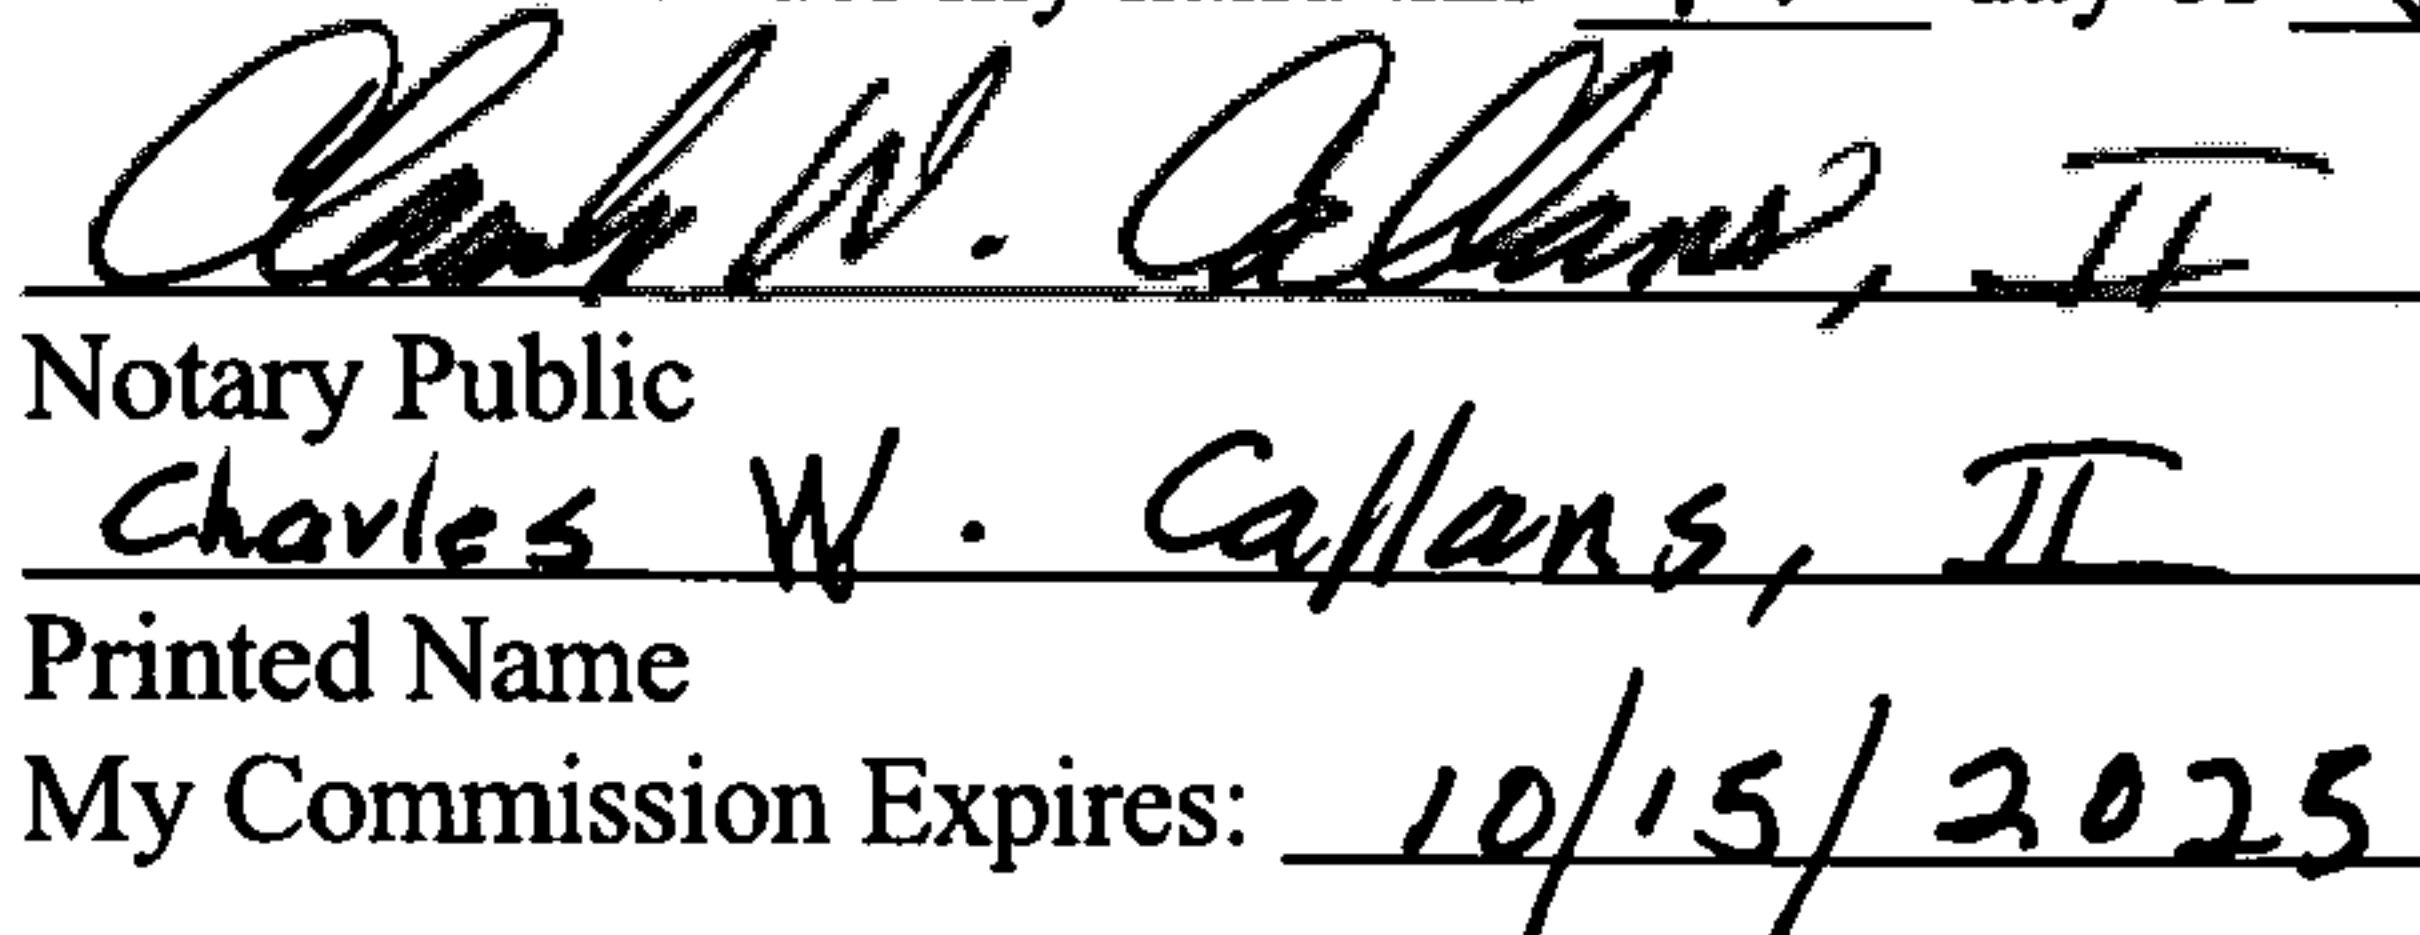 day of
Charles W. Callans, II
Notary Public
Charles W. Callans, II
Printed Name
My Commission Expires: 10/15/2025